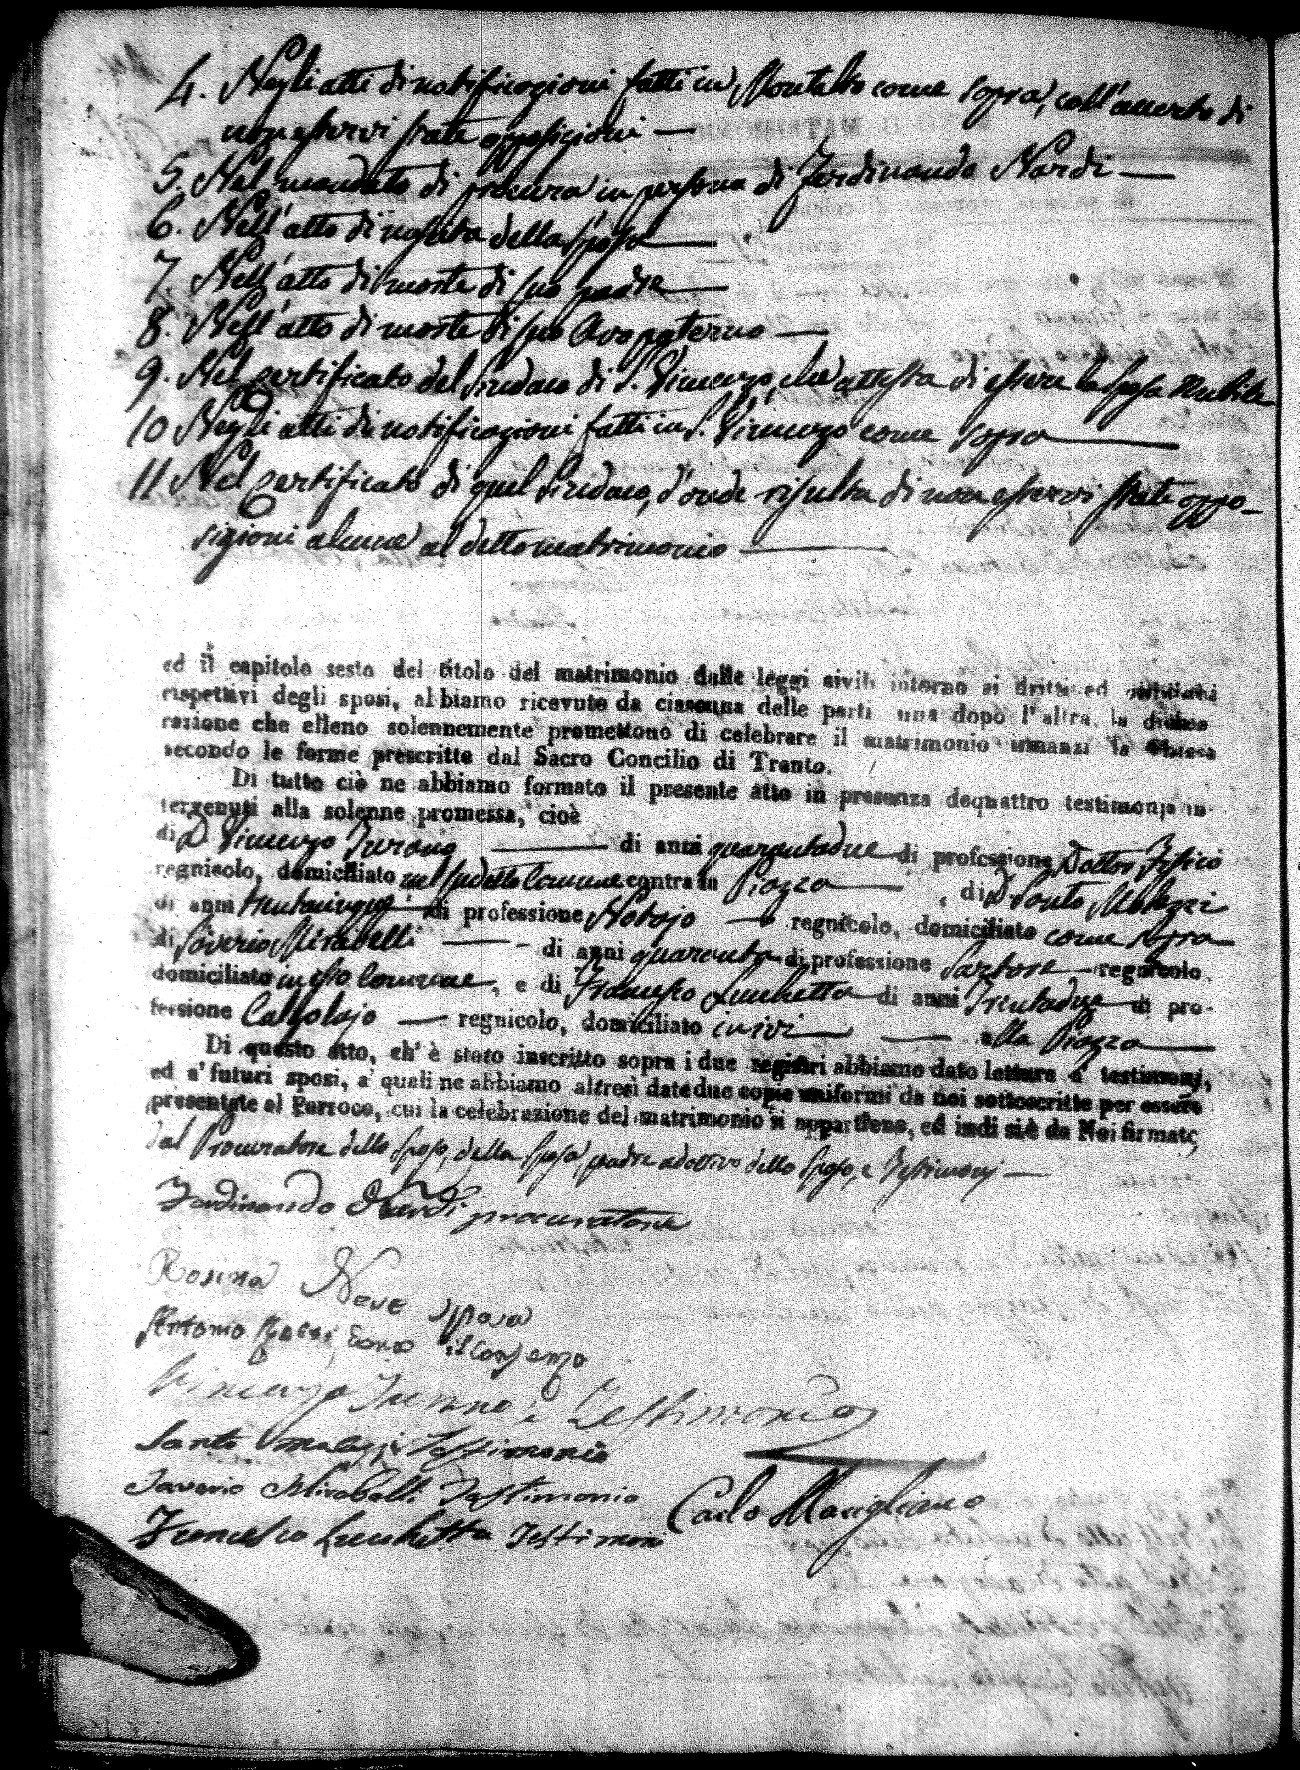 4. Negli atti di notificazioni fatti in Montalto come sopra, coll'asserto di
non esservi state opposizioni —
5. Nel mandato di procura in persona di Ferdinando Nardi —
6. Nell'atto di nascita della sposa —
7. Nell'atto di morte di suo padre —
8. Nell'atto di morte di suo Avo paterno —
9. Nel certificato del Sindaco di S. Vincenzo, che attesta di essere la sposa nubile
10 Negli atti di notificazioni fatti in S. Vincenzo come sopra —
11 Nel certificato di quel Sindaco, d'onde risulta di non esservi state oppo-
sizioni alcune al detto matrimonio —
ed il capitolo sesto del titolo del matrimonio delle leggi civili intorno ai dritti ed
rispettivi degli sposi, abbiamo ricevuto da ciascuna delle parti una dopo l'altra, la dichia
razione che elleno solennemente promettono di celebrare il matrimonio innanzi la Chiesa
secondo le forme prescritte dal Sacro Concilio di Trento.
Di tutto ciò ne abbiamo formato il presente atto in presenza de quattro testimonj in-
tervenuti alla solenne promessa, cioè
di D. Vincenzo Turano — di anni quarantadue di professione Dottor Fisico
regnicolo, domiciliato nel sudetto Comune contra in Piazza —, di D. Santo Malizzi
di anni trentacinque di professione Notajo — regnicolo, domiciliato come sopra —
di Saverio Mirabelli — di anni quaranta di professione Sartore — regnicolo
domiciliato in esso Comune, e di Francesco Lucchetta di anni Trentadue — di pro-
fessione Calzolajo — regnicolo, domiciliato in ivi — alla Piazza —
Di questo atto, ch'è stato inscritto sopra i due registri abbiamo dato lettura a' testimonj,
ed a' futuri sposi, a' quali ne abbiamo altresì date due copie uniformi da noi sottoscritte per essere
presentate al Parroco, cui la celebrazione del matrimonio si appartiene, ed indi si è da Noi firmato,
dal Procuratore dello sposo, della sposa, padre adottivo dello sposo, e Testimonj —
Ferdinando Nardi procuratore
Rosina Neve sposa
Antonio il Consenzo
Vincenzo Turano Testimonio
Santo Malizzi Testimonio
Saverio Mirabelli Testimonio Carlo Marigliano
Francesco Lucchetta Testimoni